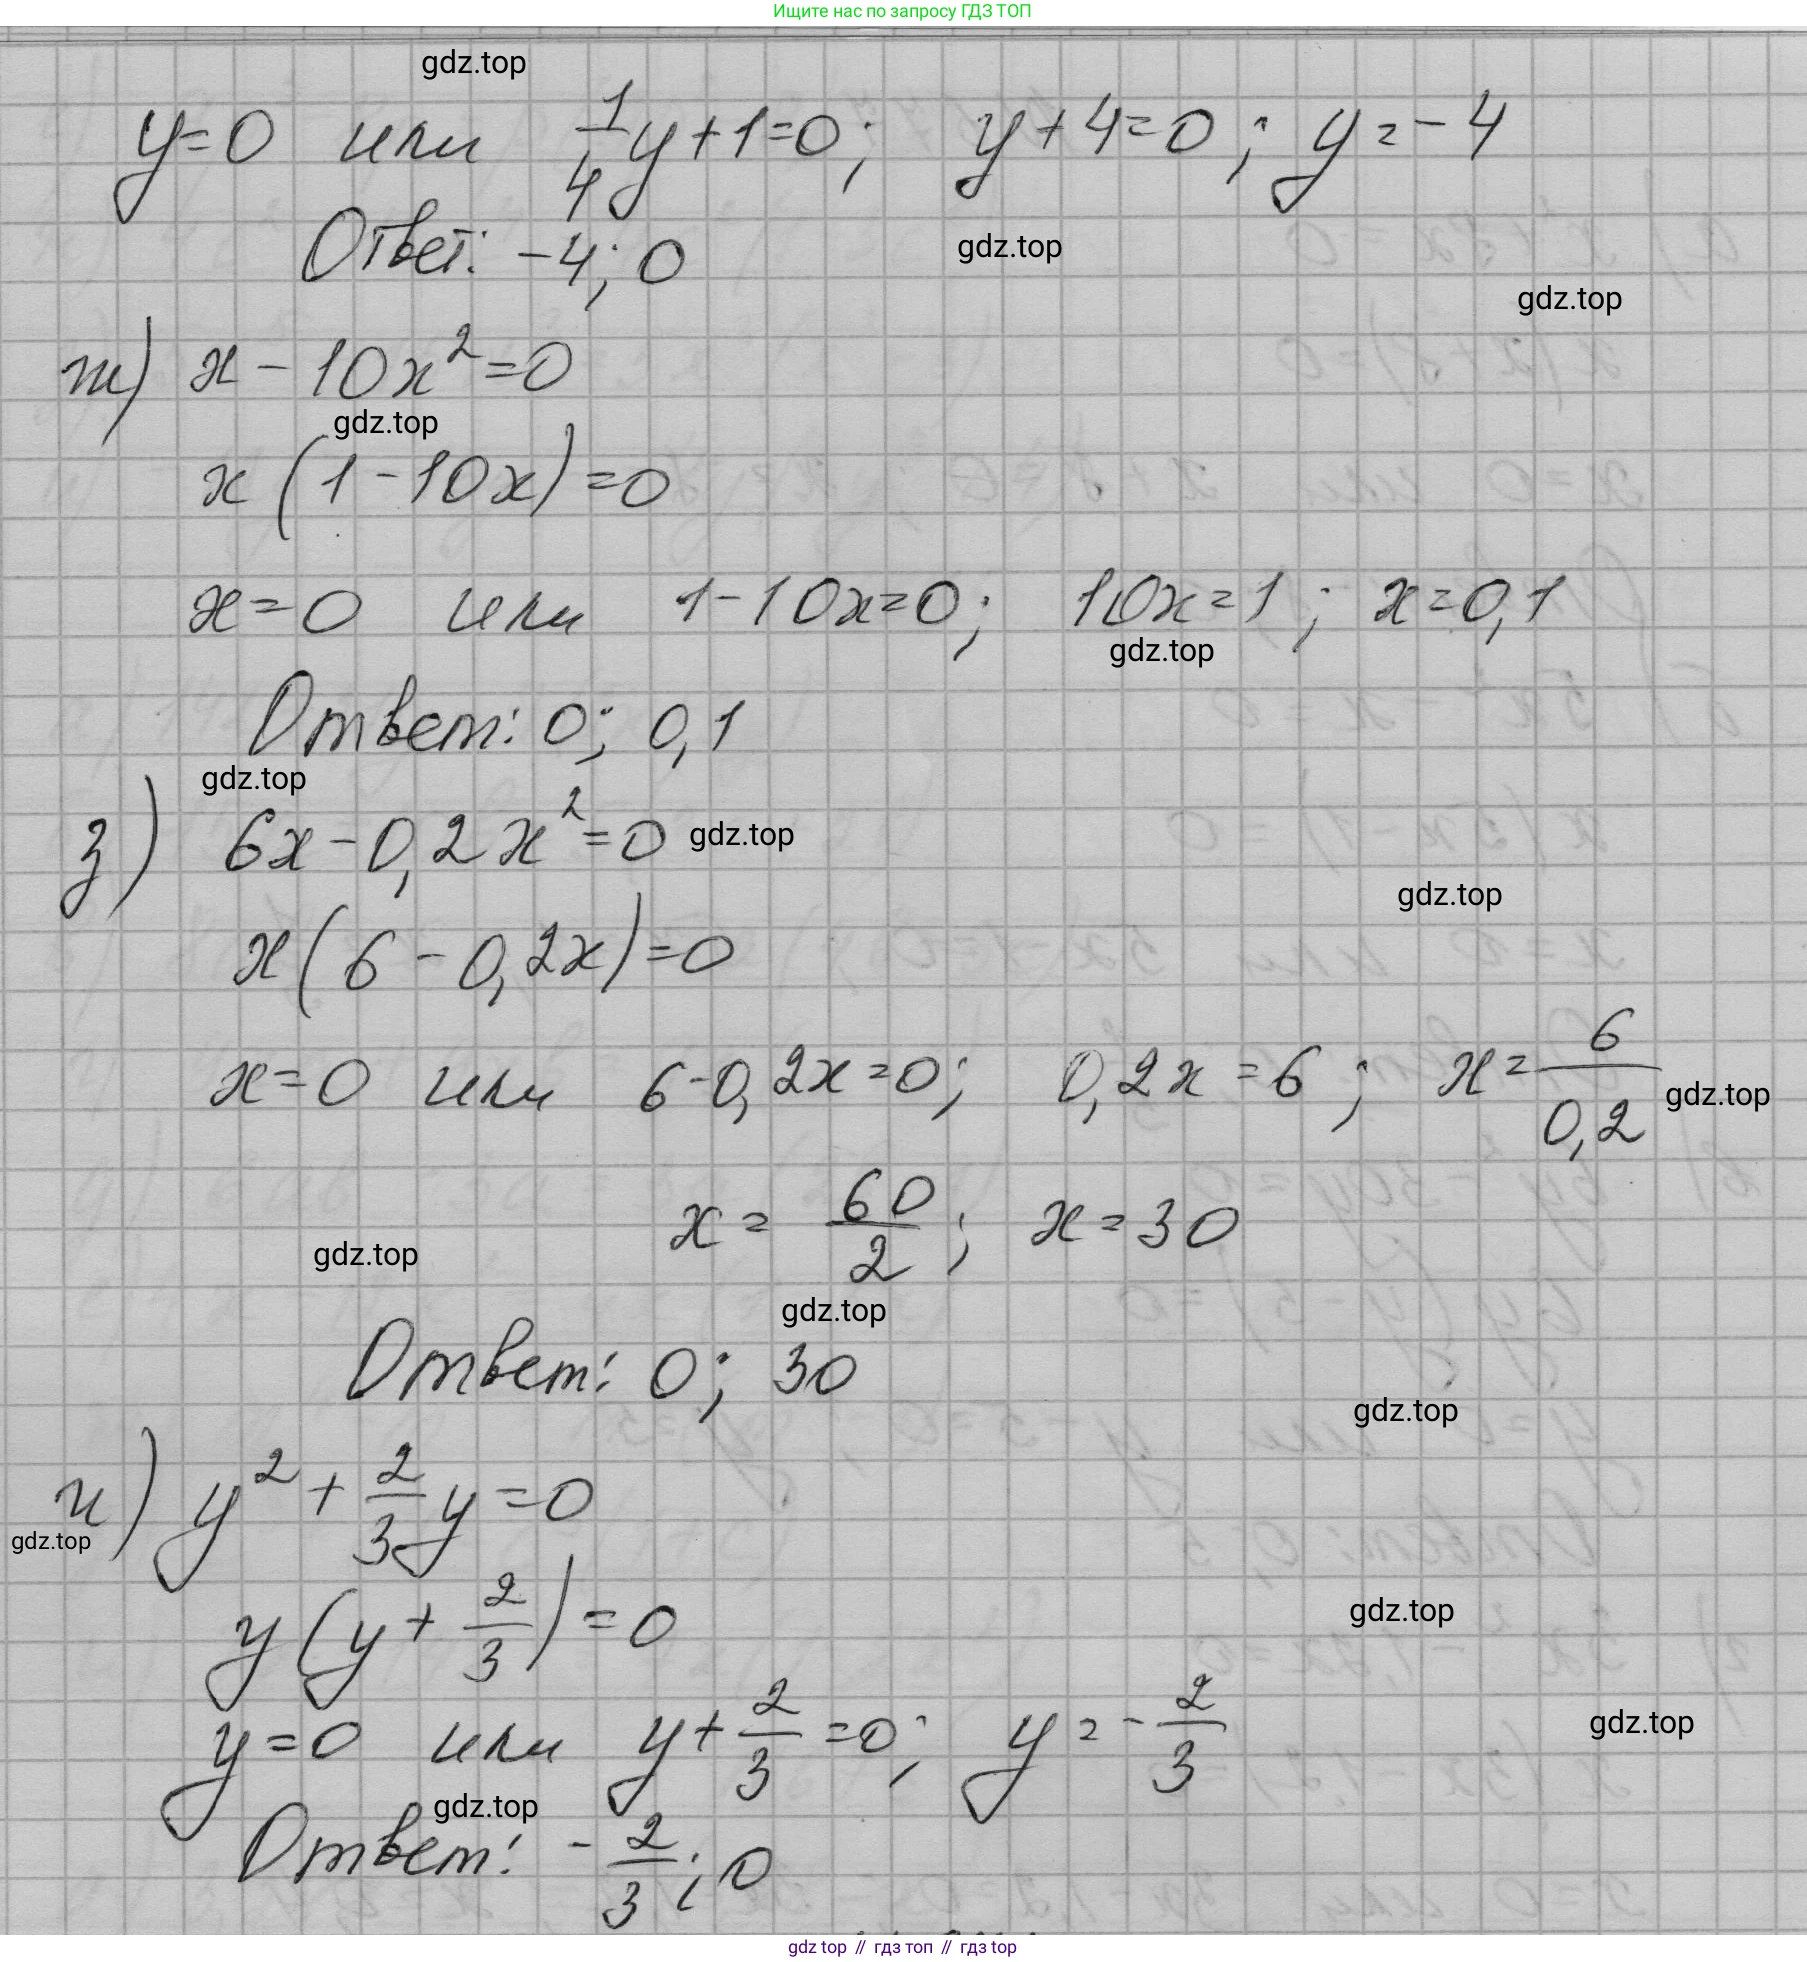 Ищите нас по запросу ГДЗ ТОП
gdz.top
y=0 или 1/4 y+1=0; y+4=0; y=-4
Ответ: -4; 0
gdz.top
gdz.top
ж) x-10x²=0
gdz.top
x(1-10x)=0
x=0 или 1-10x=0; 10x=1; x=0,1
gdz.top
Ответ: 0; 0,1
gdz.top
з) 6x-0,2x²=0 gdz.top
gdz.top
x(6-0,2x)=0
x=0 или 6-0,2x=0; 0,2x=6; x=6/0,2 gdz.top
x=60/2; x=30
gdz.top
gdz.top
Ответ: 0; 30
gdz.top
и) y²+2/3 y=0
gdz.top
y(y+2/3)=0
gdz.top
y=0 или y+2/3=0; y=-2/3
gdz.top
gdz.top
Ответ: -2/3; 0
gdz top // гдз топ // гдз top